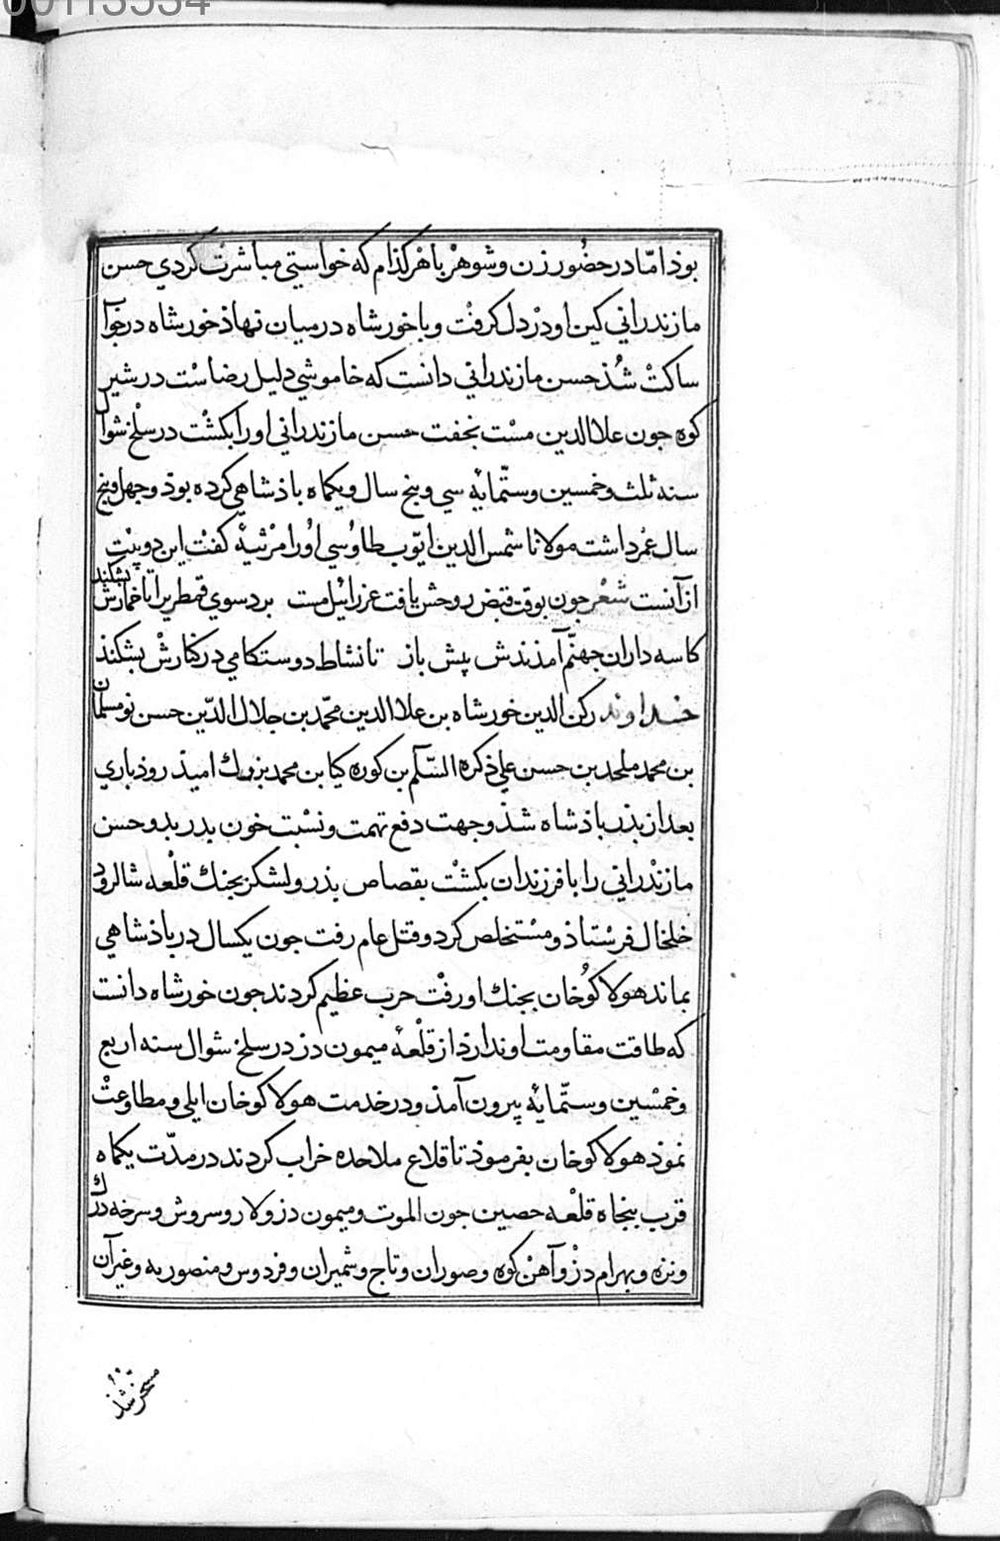 00113534
بوذ امّا در حضور زن و شوهر با هر کذام که خواستی مباشرت کردی حسن
مازندرانی کین او در دل کرفت و با خورشاه درمیان نهاذ خورشاه در جواب
ساکت شذ حسن مازندرانی دانست که خاموشی دلیل رضاست در شیر
کوه جون علاالدین مست بخفت حسن مازندرانی اورا بکشت در سلخ شوال
سنه ثلث و خمسین و ستّمایهٔ سی و پنج سال و یکماه باذشاهی کرده بوذ و جهل و پنج
سال عمر داشت مولانا شمس الدین ایّوب طاوسی اورا مرثیهٔ کفت این دو بیت
از آنست شعر جون بوقت قبض روحش یافت عزرائیل مست بردسوی قمطریرا تا خمارش بشکند
کاسه داران جهنّم آمذندش پیش باز تا نشاط دوستکامی در کنارش بشکند
خداوند رکن الدین خورشاه بن علاالدین محمّد بن جلال الدّین حسن نومسلمان
بن محمد ملحد بن حسن علی ذکره السّلم بن کوره کیا بن محمد بزرک امیذ روذباری
بعد از بذر باذشاه شذ وجهت دفع تهمت و نسبت خون بدر بدو حسن
مازندرانی را با فرزندان بکشت بقصاص بذر و لشکر بجنک قلعه شالرود
خلخال فرستاذ و مستخلص کرد و قتل عام رفت جون یکسال در باذشاهی
بماند هولاکوخان بجنک او رفت حرب عظیم کردند جون خورشاه دانست
که طاقت مقاومت او ندارد از قلعهٔ میمون دز در سلخ شوال سنه اربع
و خمسین و ستّمایهٔ بیرون آمذ و در خدمت هولاکوخان ایلی و مطاوعت
نموذ هولاکوخان بفرموذ تا قلاع ملاحده خراب کردند در مدّت یکماه
قرب بنجاه قلعه حصین جون الموت و میمون دز و لار و سروش و سرخه دزک
و نیزه و بهرام دز و آهن کوه و صوران و تاج و شمیران و فردوس و منصوریه و غیر آن